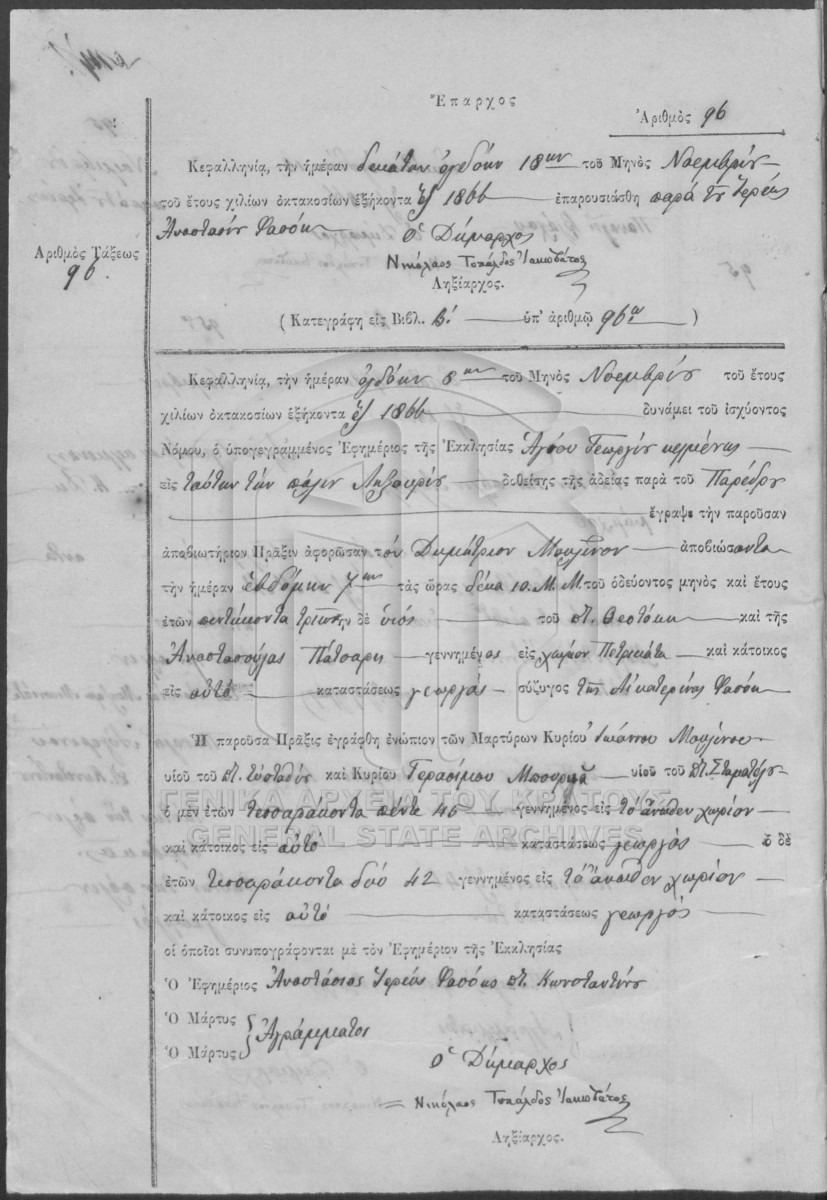 Ἔπαρχος
Ἀριθμὸς 96
Κεφαλληνία, τὴν ἡμέραν δεκάτην ὀγδόην 18ην τοῦ Μηνὸς Νοεμβρίου
τοῦ ἔτους χιλίων ὀκτακοσίων ἑξήκοντα ἓξ 1866 ἐπαρουσιάσθη παρὰ τοῦ Ἱερέως
Ἀναστασίου Φασόη
Ὁ Δήμαρχος
Ἀριθμὸς Τάξεως
96
Νικόλαος Τυπάλδος Ἰακωβάτος
Ληξίαρχος.
(Κατεγράφη εἰς Βιβλ. Β! ὑπ' ἀριθμῷ 96α)
Κεφαλληνία, τὴν ἡμέραν ὀγδόην 8ην τοῦ Μηνὸς Νοεμβρίου τοῦ ἔτους
χιλίων ὀκτακοσίων ἑξήκοντα ἓξ 1866 δυνάμει τοῦ ἰσχύοντος
Νόμου, ὁ ὑπογεγραμμένος Ἐφημέριος τῆς Ἐκκλησίας Ἁγίου Γεωργίου κειμένης
εἰς ταύτην τὴν πόλιν Ληξουρίου δοθείσης τῆς ἀδείας παρὰ τοῦ Παρέδρου
ἔγραψε τὴν παροῦσαν
ἀποβιωτήριον Πρᾶξιν ἀφορῶσαν τὸν Δημήτριον ἀποβιώσαντα
τὴν ἡμέραν ἑβδόμην 7ην τὰς ὥρας δέκα 10. Μ. Μ τοῦ ὁδεύοντος μηνὸς καὶ ἔτους
ἐτῶν πεντήκοντα τριῶν ἦν δὲ υἱός τοῦ ποτ. Θεοτόκη καὶ τῆς
Ἀναστασούλας Πάτσαρη γεννημένος εἰς χωρίον Πετρικάτα καὶ κάτοικος
εἰς αὐτό καταστάσεως γεωργός σύζυγος τῆς Αἰκατερίνας Φασόη
Ἡ παροῦσα Πρᾶξις ἐγράφη ἐνώπιον τῶν Μαρτύρων Κυρίου Ἰωάννου
υἱοῦ τοῦ ποτ. Εὐσταθίου καὶ Κυρίου Γερασίμου υἱοῦ τοῦ ποτ. Σταματέλου
ὁ μὲν ἐτῶν τεσσαράκοντα πέντε 45 γεννημένος εἰς τὸ ἄνωθεν χωρίον
καὶ κάτοικος εἰς αὐτό καταστάσεως γεωργός ὁ δὲ
ἐτῶν τεσσαράκοντα δύο 42 γεννημένος εἰς τὸ ἄνωθεν χωρίον
καὶ κάτοικος εἰς αὐτό καταστάσεως γεωργός
οἱ ὁποῖοι συνυπογράφονται μὲ τὸν Ἐφημέριον τῆς Ἐκκλησίας
Ὁ Ἐφημέριος Ἀναστάσιος Ἱερεὺς Φασόης ποτ. Κωνσταντίνου
Ὁ Μάρτυς
Ὁ Μάρτυς
Ἀγράμματοι
Ὁ Δήμαρχος
Νικόλαος Τυπάλδος Ἰακωβάτος
Ληξίαρχος.
ΓΕΝΙΚΑ ΑΡΧΕΙΑ ΤΟΥ ΚΡΑΤΟΥΣ
GENERAL STATE ARCHIVES